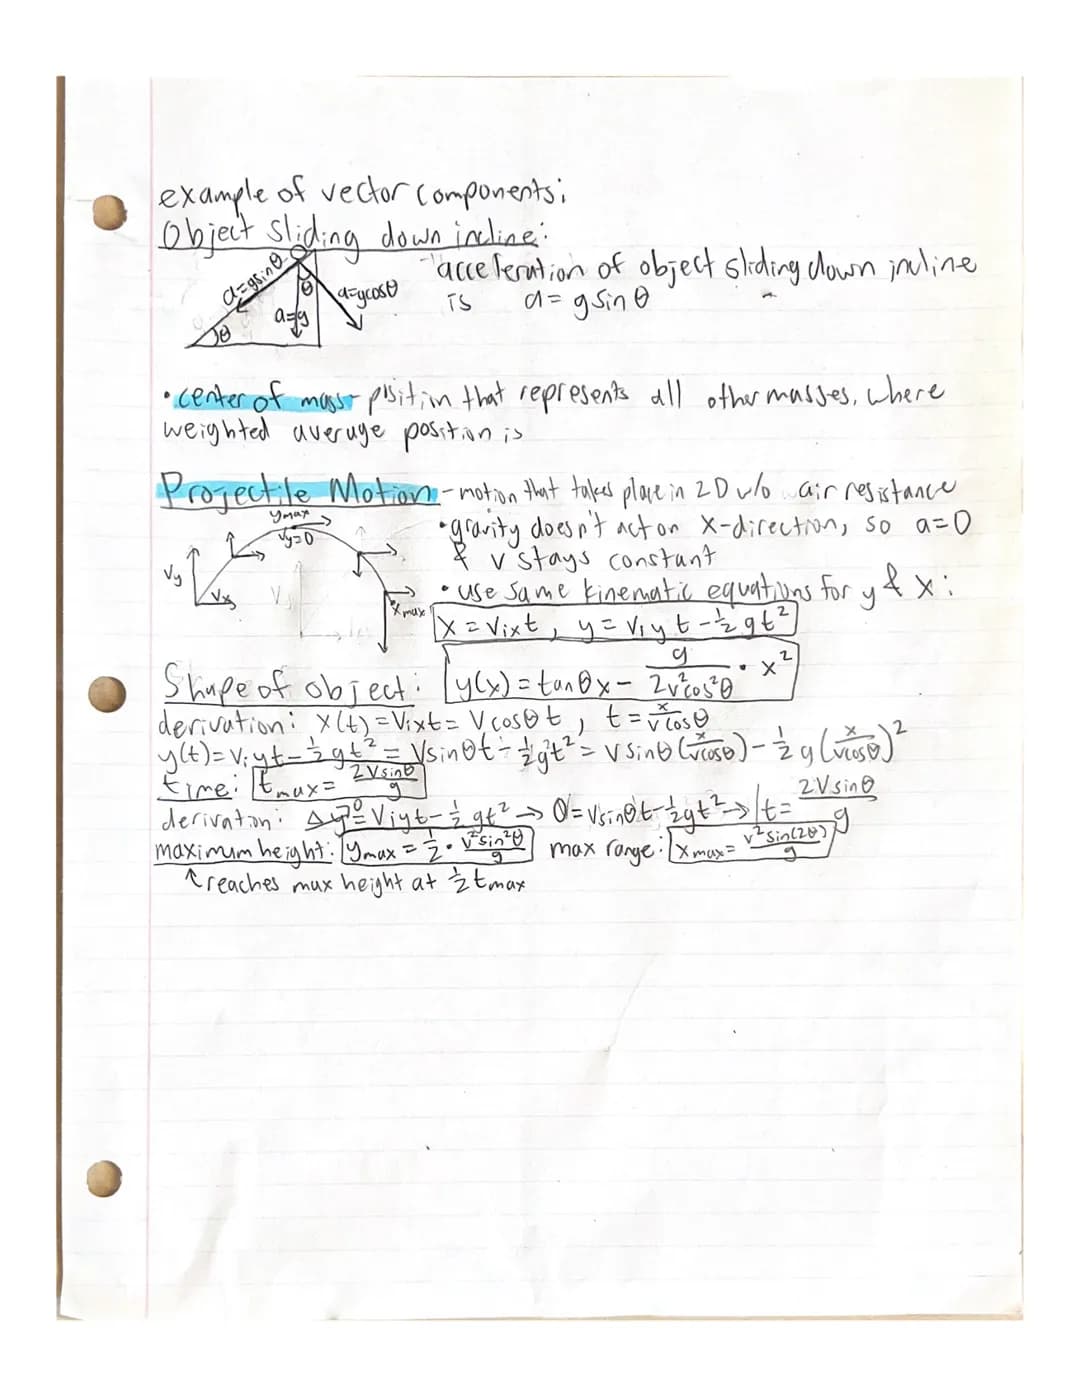 example of vector components:
Object sliding down incline:
a=gsinθ
θ
a=gcosθ
a=g
θ
acceleration of object sliding down incline
is a = g sin θ
• center of mass - position that represents all other masses, where
weighted average position is
Projectile Motion - motion that takes place in 2D w/o air resistance
ymax
vy=0
Vy
Vx
xmax
• gravity doesn't act on x-direction, so a=0
& v stays constant
• use same kinematic equations for y & x:
x = Vixt, y = Viyt - ½gt²
Shape of object: y(x) = tanθx - g/2v²cos²θ • x²
derivation: x(t) = Vixt = Vcosθt, t = x/vcosθ
y(t) = Viyt - ½gt² = Vsinθt - ½gt² = Vsinθ(x/vcosθ) - ½g(x/vcosθ)²
time: tmax = 2Vsinθ/g
derivation: Δy⁰ = Viyt - ½gt² → 0 = Vsinθt - ½gt² → t = 2Vsinθ/g
maximum height: ymax = ½ • v²sin²θ/g max range: xmax = v²sin(2θ)/g
↑ reaches max height at ½tmax